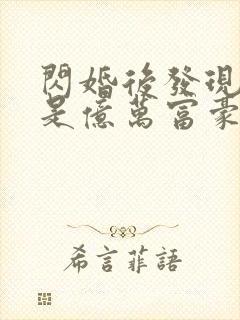 閃婚後發現
是億萬富豪
希言菲語